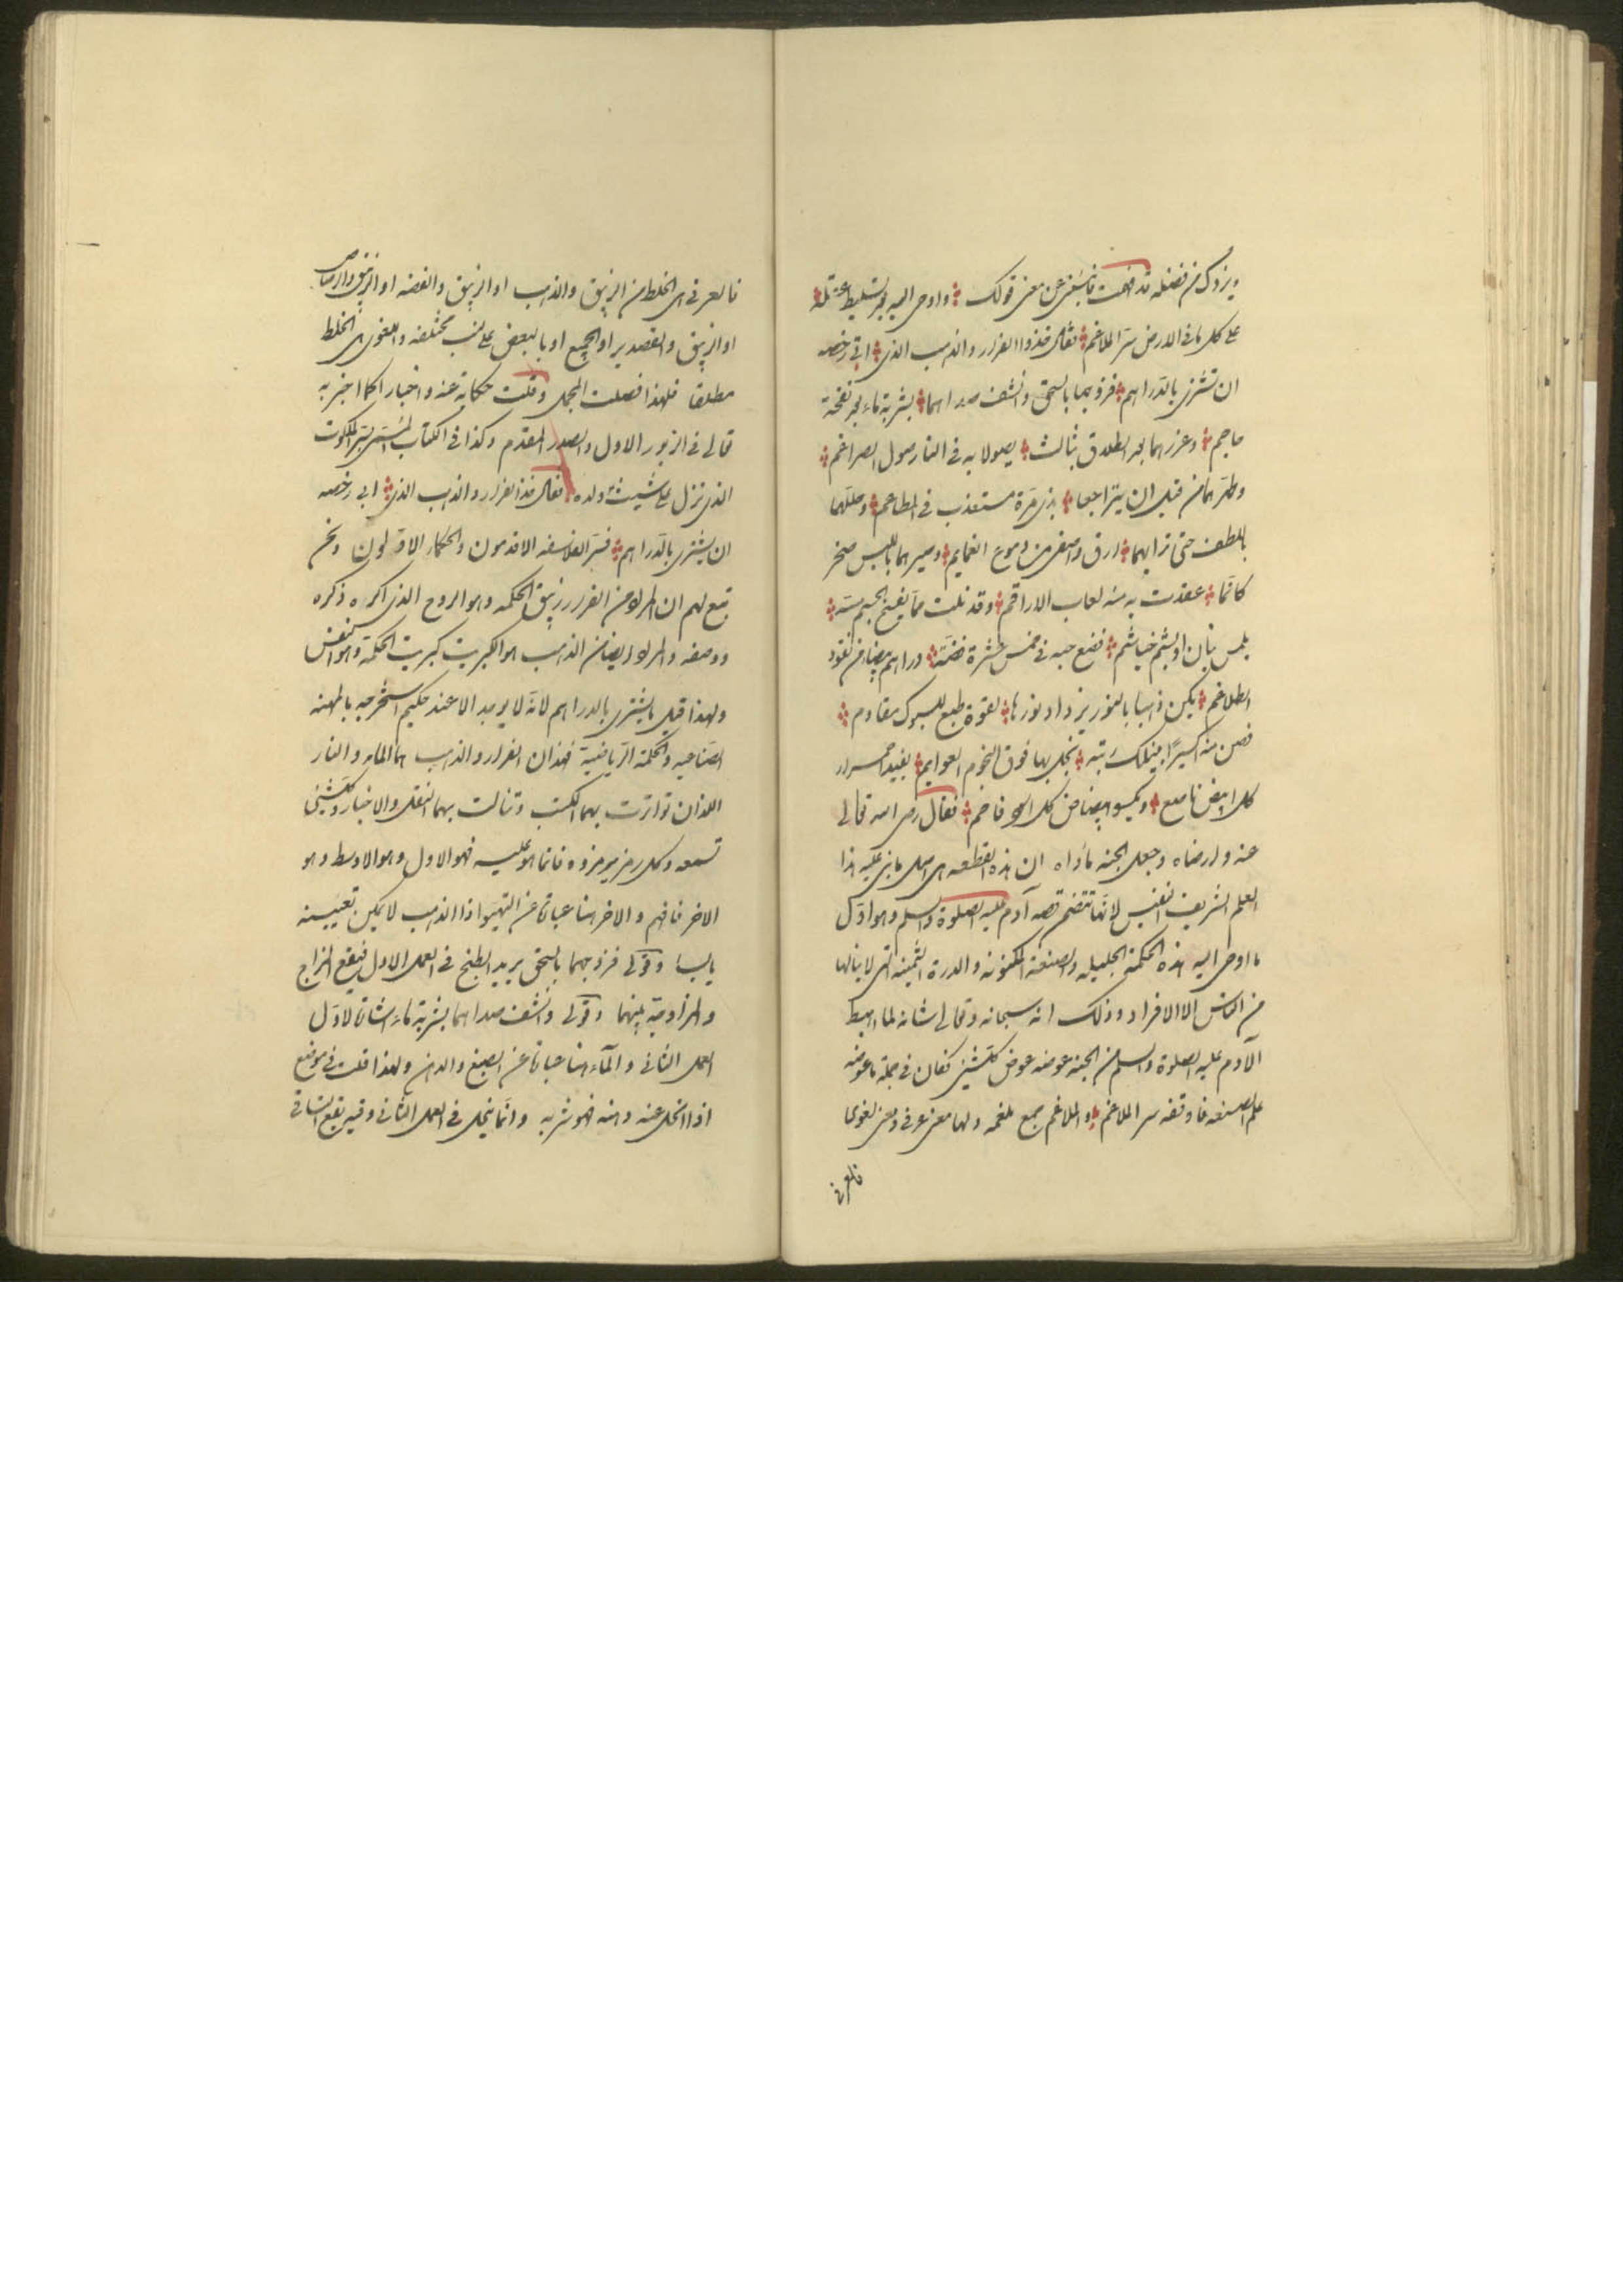 ويزدك من فضله قد فهمت فاخبرني عن معنى قولك واوحى اليه بتسليط
على كل ما في الارض سر الملاغم فقال خذوا الفرار والذهب الذي ابى رخصه
ان تشترى بالدراهم فزوجهما بالسحق وانشف صداهما بشربة ماء بعد نفحة
جاحم وعززهما بعد الطلاق بثالث يصولا به في النار صول الضراغم
من قبل ان يتراجعا بذي مرة مستعذب في المطاعم وحلهما
باللطف حتى تراهما ارق واصفى من دموع الغمايم وصيرهما باليبس صخر
كانما عقدت به منه لعاب الاراقم وقد نلت
فضع حبه في خمس عشرة فضة دراهم بيضا من نقود
يكن ذهبا بالنور يزداد نورها لقوة طبع للسبوك مقاوم
فصن منه اكسيرا ينيلك رتبة تحل بها فوق النجوم العوايم
كل ابيض ناصع ويكسو بياضا كل اسود فاحم فقال رضى الله تعالى
عنه وارضاه وجعل الجنة مأواه ان هذه القطعه هى اصل ما بنى عليه هذا
العلم الشريف النفيس لانها تتضمن قصه آدم عليه الصلوة والسلم وهو اول
ما اوحى اليه هذه الحكمة الجليله والصنعة المكنونه والدرة الثمينه التى لا ينالها
من الناس الا الافراد وذلك انه سبحانه وتعالى شانه لما اهبط
الآدم عليه الصلوة والسلم من الجنه عوضه عوض كل شيئ فكان في جملة ما عوضه
علم الصنعه فاوقفه سر الملاغم والملاغم جمع ملغمه ولها معنى عرفى ومعنى لغوى
فالعرفى
فالعرفى هى الخلط من الزيبق والذهب او الزيبق والفضه او الزيبق والرصاص
او الزيبق والقصدير او الجميع او بالبعض على نسب مختلفه واللغوى هى الخلط
مطلقا فلهذا فصلت المجمل وقلت حكاية عنه واخبارا كما اخبر به
تعالى في الزبور الاول والصدر المقدم وكذا في الكتاب المسمى بسر الملكوت
الذى نزل على شيث ولده فقال خذ الفرار والذهب الذى ابى رخصه
ان يشترى بالدراهم فسر الفلاسفه الاقدمون والحكماء الاولون ونحن
تبع لهم ان المراد من الفرار زيبق الحكمه وهو الروح الذى اكره ذكره
ووصفه والمراد ايضا من الذهب هو الكبريت كبريت الحكمة وهو النفس
ولهذا قيل ما يشترى بالدراهم لانه لا يوجد الا عند حكيم استخرجه بالمهنه
الصناعيه والحكمة الرياضية فهذان الفرار والذهب هما الماء والنار
اللذان تواترت بهما الكتب وتتالت بهما النقل والاخبار وكل شيئ
تسمعه وكل رمز يرمزوه فانما هو عليه فهو الاول وهو الاوسط وهو
الاخر فافهم والاخر هنا عبارة عن التهيؤ اذ الذهب لا يمكن تعيينه
يابسا وقولى فزوجهما بالسحق يريد الطبخ في العمل الاول فيقع المزاج
والمزاوجة بينهما وقولى وانشف صداهما بشربة ماء اشارة لاول
العمل الثاني والماء هنا عبارة عن الصبغ والدهن ولهذا قلت في موضع
اذا انحل عنه دهنه فهو شربه وانما ينحل في العمل الثاني وفيه يقع التساقى